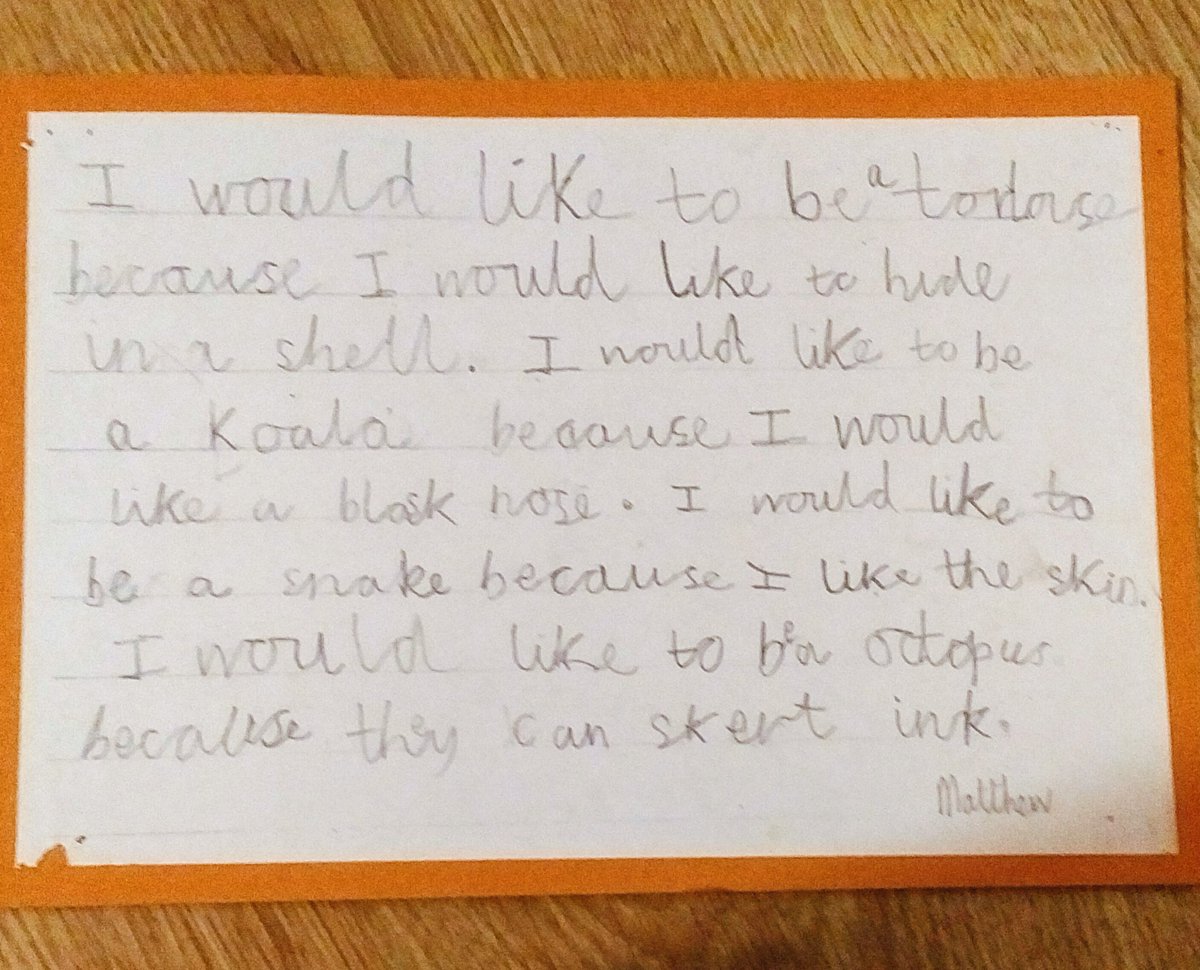 I would like to be a tordouse
because I would like to hide
in a shell. I would like to be
a Koala because I would
like a blask nose. I would like to
be a snake because I like the skin.
I would like to be a octopus
because they can skert ink.
Matthew